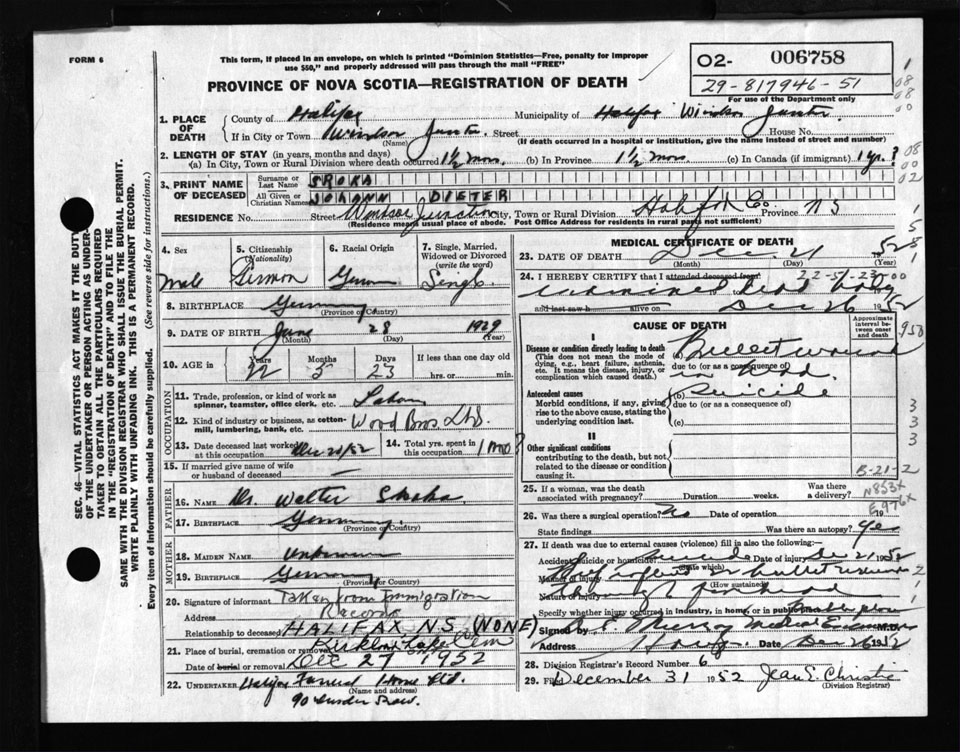 FORM 6
This form, if placed in an envelope, on which is printed "Dominion Statistics—Free, penalty for improper
use $50," and properly addressed will pass through the mail "FREE"
O2- 006758
29-817946-51
For use of the Department only
PROVINCE OF NOVA SCOTIA—REGISTRATION OF DEATH
1. PLACE OF DEATH
County of Halifax Municipality of Halifax Windsor Junctn.
If in City or Town Windsor Junctn. Street House No.
(Name) (If death occurred in a hospital or institution, give the name instead of street and number)
2. LENGTH OF STAY (in years, months and days)
(a) In City, Town or Rural Division where death occurred 1½ mos. (b) In Province 1½ mos. (c) In Canada (if immigrant) 1 yr. ?
3. PRINT NAME OF DECEASED
Surname or Last Name SROKA
All Given or Christian Names JOHANN DIETER
RESIDENCE No. Street Windsor Junction City, Town or Rural Division Halifax Co. Province N S
(Residence means usual place of abode. Post Office Address for residents in rural parts not sufficient)
4. Sex
male
5. Citizenship (Nationality)
German
6. Racial Origin
German
7. Single, Married, Widowed or Divorced (write the word)
Single
8. BIRTHPLACE Germany
(Province or Country)
9. DATE OF BIRTH June 28 1929
(Month) (Day) (Year)
10. AGE in Years Months Days If less than one day old
22 5 23 hrs. or min.
OCCUPATION
11. Trade, profession, or kind of work as spinner, teamster, office clerk, etc. Labor
12. Kind of industry or business, as cotton-mill, lumbering, bank, etc. Wood Bros Ltd.
13. Date deceased last worked at this occupation Dec 20/52
14. Total yrs. spent in this occupation 1 mo ?
15. If married give name of wife or husband of deceased
FATHER
16. NAME Dr. Walter Sroka
17. BIRTHPLACE Germany.
(Province or Country)
MOTHER
18. MAIDEN NAME Unknown
19. BIRTHPLACE Germany
(Province or Country)
20. Signature of informant Taken from Immigration
Address Records
Relationship to deceased HALIFAX N.S. (NONE)
21. Place of burial, cremation or removal
Date of burial or removal DEC 27 1952
22. UNDERTAKER Halifax Funeral Home Ltd.
(Name and address)
90
MEDICAL CERTIFICATE OF DEATH
23. DATE OF DEATH Dec. 21 1952
(Month) (Day) (Year)
24. I HEREBY CERTIFY that I attended deceased from
22-5-23
examined dead body
and last saw h alive on Dec 26 1952
CAUSE OF DEATH
Approximate interval between onset and death
I
Disease or condition directly leading to death
(This does not mean the mode of dying, e.g., heart failure, asthenia, etc. It means the disease, injury, or complication which caused death.)
(a) Bullet wound
due to (or as a consequence of)
in head.
Antecedent causes
Morbid conditions, if any, giving rise to the above cause, stating the underlying condition last.
(b) Suicide
due to (or as a consequence of)
(c)
II
Other significant conditions
contributing to the death, but not related to the disease or condition causing it.
B-21-2
N853x
E976x
25. If a woman, was the death associated with pregnancy? Duration weeks. Was there a delivery?
26. Was there a surgical operation? No Date of operation 19
State findings Was there an autopsy? Yes
27. If death was due to external causes (violence) fill in also the following:
Accident, suicide or homicide? Suicide Date of injury Dec 21 1952
(State which)
Manner of injury
(How sustained)
Nature of injury through forehead
Specify whether injury occurred in industry, in home, or in public place
Signed by Murray Medical Examiner M.D.
Address Date Dec 26 1952
28. Division Registrar's Record Number 6
29. Filed December 31 1952 Jean E. Christie
(Division Registrar)
SEC. 46—VITAL STATISTICS ACT MAKES IT THE DUTY
OF THE UNDERTAKER OR PERSON ACTING AS UNDERTAKER
TO OBTAIN ALL THE PARTICULARS REQUIRED
IN THE "REGISTRATION OF DEATH" AND TO FILE THE
SAME WITH THE DIVISION REGISTRAR WHO SHALL ISSUE THE BURIAL PERMIT.
WRITE PLAINLY WITH UNFADING INK. THIS IS A PERMANENT RECORD.
Every item of information should be carefully supplied. (See reverse side for instructions.)